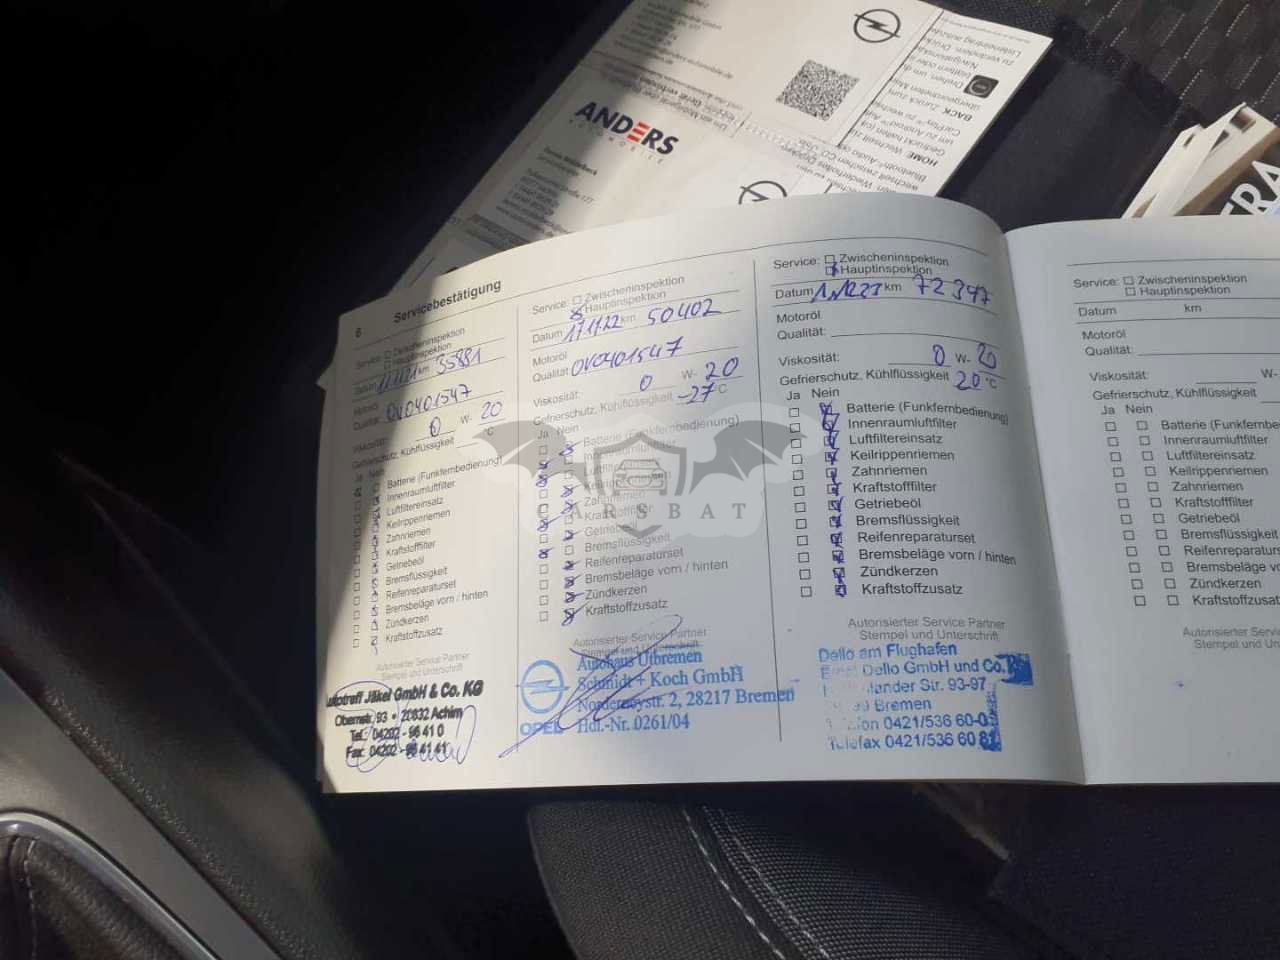 ANDERS
AUTOMOBILE
BACK
HOME
6
Servicebestätigung
Service: Zwischeninspektion
Hauptinspektion
Datum 11.11.21 km 35881
Motoröl
Qualität: OVO401547
Viskosität: 0 W- 20
Gefrierschutz, Kühlflüssigkeit °C
Ja Nein
Batterie (Funkfernbedienung)
Innenraumluftfilter
Luftfiltereinsatz
Keilrippenriemen
Zahnriemen
Kraftstofffilter
Getriebeöl
Bremsflüssigkeit
Reifenreparaturset
Bremsbeläge vorn / hinten
Zündkerzen
Kraftstoffzusatz
Autorisierter Service Partner
Stempel und Unterschrift
Jäkel GmbH & Co. KG
Obernstr. 93 • 28832 Achim
Tel.: 04202 - 96 41 0
Fax: 04202 - 96 41 41
Service: Zwischeninspektion
Hauptinspektion
Datum 17.11.22 km 50402
Motoröl
Qualität OVO401547
Viskosität: 0 W- 20
Gefrierschutz, Kühlflüssigkeit -27 °C
Ja Nein
Batterie (Funkfernbedienung)
Innenraumluftfilter
Luftfiltereinsatz
Keilrippenriemen
Zahnriemen
Kraftstofffilter
Getriebeöl
Bremsflüssigkeit
Reifenreparaturset
Bremsbeläge vorn / hinten
Zündkerzen
Kraftstoffzusatz
Autorisierter Service Partner
Stempel und Unterschrift
Autohaus Utbremen
Schmidt + Koch GmbH
Norderneystr. 2, 28217 Bremen
OPEL Hdl.-Nr. 0261/04
Service: Zwischeninspektion
Hauptinspektion
Datum km 72347
Motoröl
Qualität:
Viskosität: 0 W- 20
Gefrierschutz, Kühlflüssigkeit 20 °C
Ja Nein
Batterie (Funkfernbedienung)
Innenraumluftfilter
Luftfiltereinsatz
Keilrippenriemen
Zahnriemen
Kraftstofffilter
Getriebeöl
Bremsflüssigkeit
Reifenreparaturset
Bremsbeläge vorn / hinten
Zündkerzen
Kraftstoffzusatz
Autorisierter Service Partner
Stempel und Unterschrift
Dello am Flughafen
Dello GmbH und Co.
Str. 93-97
Bremen
0421/536 60-0
Telefax 0421/536 60 81
Service: Zwischeninspektion
Hauptinspektion
Datum km
Motoröl
Qualität:
Viskosität: W-
Gefrierschutz, Kühlflüssigkeit
Ja Nein
Batterie (Funkfernbe
Innenraumluftfilter
Luftfiltereinsatz
Keilrippenriemen
Zahnriemen
Kraftstofffilter
Getriebeöl
Bremsflüssigkeit
Reifenreparaturse
Bremsbeläge vo
Zündkerzen
Kraftstoffzusat
Autorisierter Se
Stempel un
CARSBAT